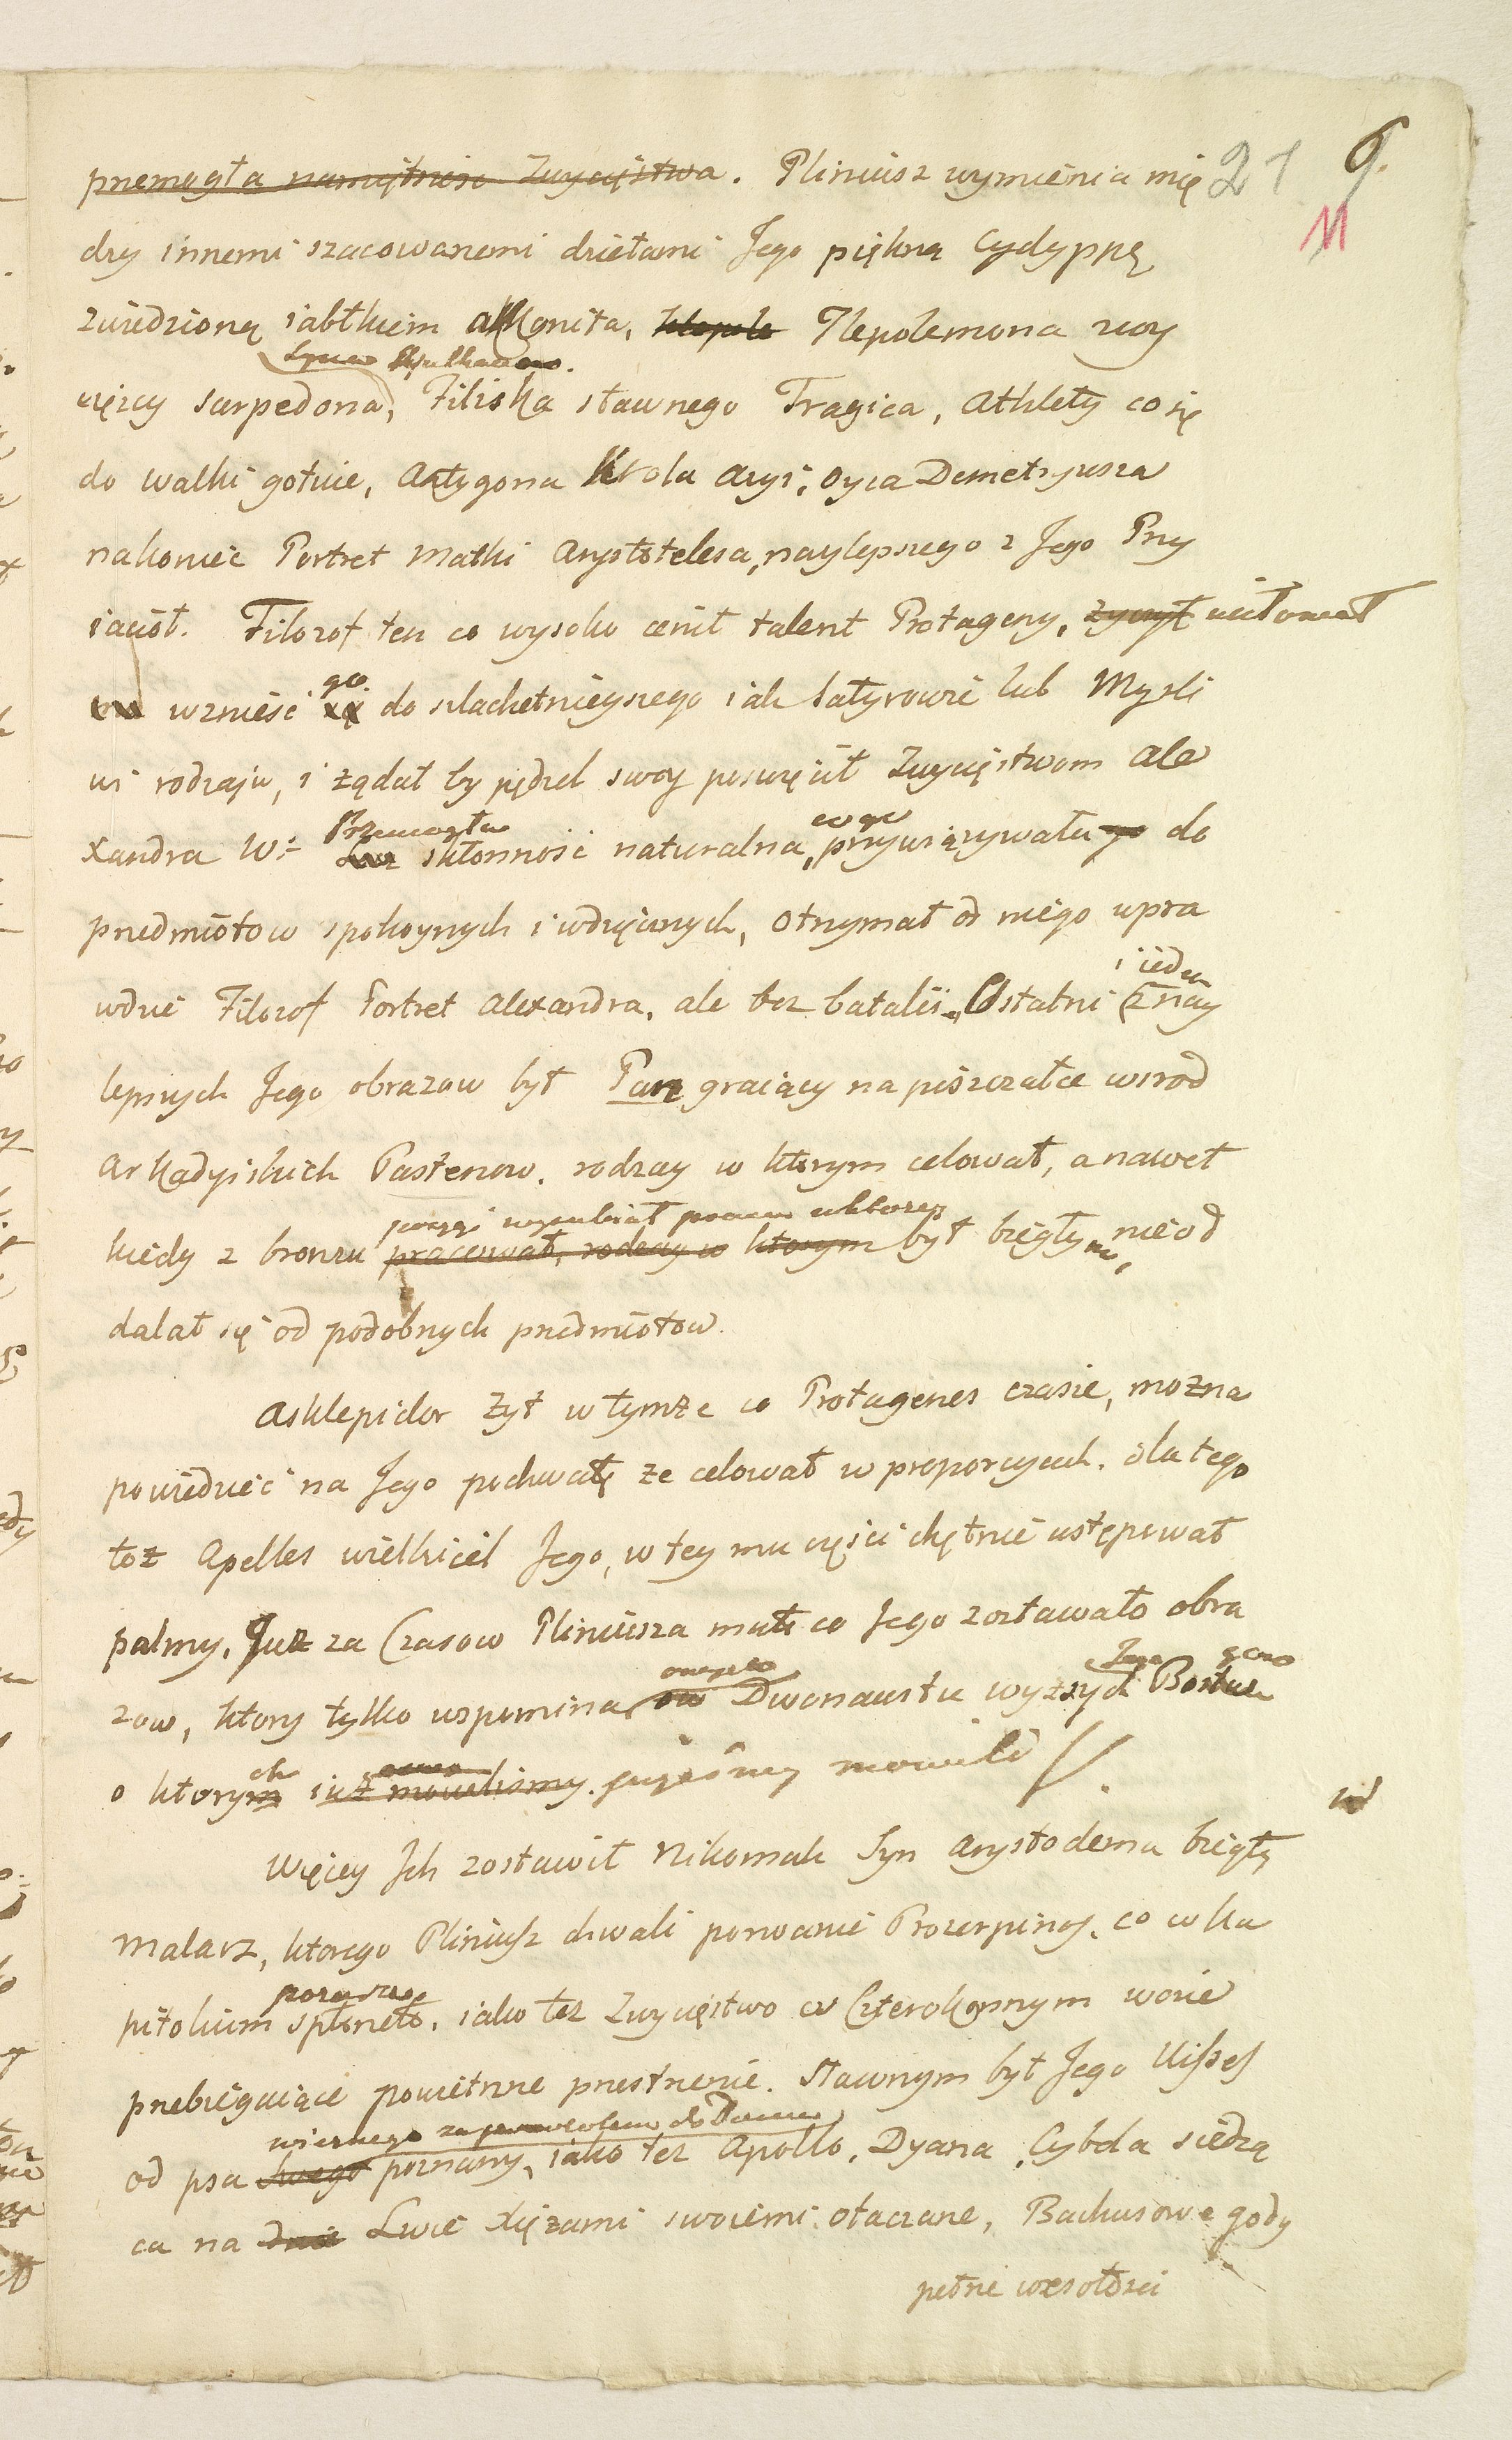 21 9.
11
przemogła namiętnosc Zwycięstwa. Pliniusz wymienia mię
dzy innemi szacowanemi dziełami Jego piękną Cydyppę
zwiedzioną iabłkiem Akkonita, Tlepolemona zwy
cięzcy Sarpedona, Filiska sławnego Tragica, Athlety co się
do walki gotuie, Antygona Krola Azyi, Oyca Demetryusza
nakoniec Portret Matki Arystotelesa, naylepszego z Jego Przy
iacioł. Filozof ten co wysoko cenił talent Protageny, życzył usiłował
go
wznieść do szlachetnieyszego iak Satyrowie lub Mysli
wi rodzaju, i żądał by pędzel swoy poswięcił Zwycięstwom Ale
Przemogła co go
xandra W: skłonność naturalna, przywiązywała go do
przedmiotow spokoynych i wdzięcznych, otrzymał od niego wpra
i ieden
wdzie Filozof Portret Alexandra, ale bez batalii. Ostatni z nay
lepszych Jego obrazow był Pan graiący na piszczałce wsrod
Arkadyiskich Pasterzow. rodzay w ktorym celował, a nawet
posągi wyrabiał
kiedy z bronzu pracował, rodzay w ktorym był biegłym, nie od
dalał się od podobnych przedmiotow.
Asklepidor żył w tymże co Protagenes czasie, można
powiedzieć na Jego pochwałę że celował w proporcyach. dla tego
też Apelles wielbiciel Jego, w tey mu części chętnie ustępował
palmy. Już za Czasow Pliniusza mało co Jego zostawało obra
zow, ktory tylko wspomina Dwonaustu wyższych
o ktorych iuż mowilismy. jużeśmy mowili
Więcey Ich zostawił Nikomak Syn Arystodema biegły
Malarz, ktorego Pliniusz chwali porwanie Prozerpiny, co w Ka
pitolium spłoneło, iako też Zwycięstwo w Czterokonnym wozie
przebiegaiące powietrzne przestrzenie. Sławnym był Jego Ulisses
wiernego
od psa swego poznany, iako też Apollo, Dyana, Cybela siedzą
ca na Lwie Xiężami swoiemi otaczane, Bachusowe gody
pełne wesołości